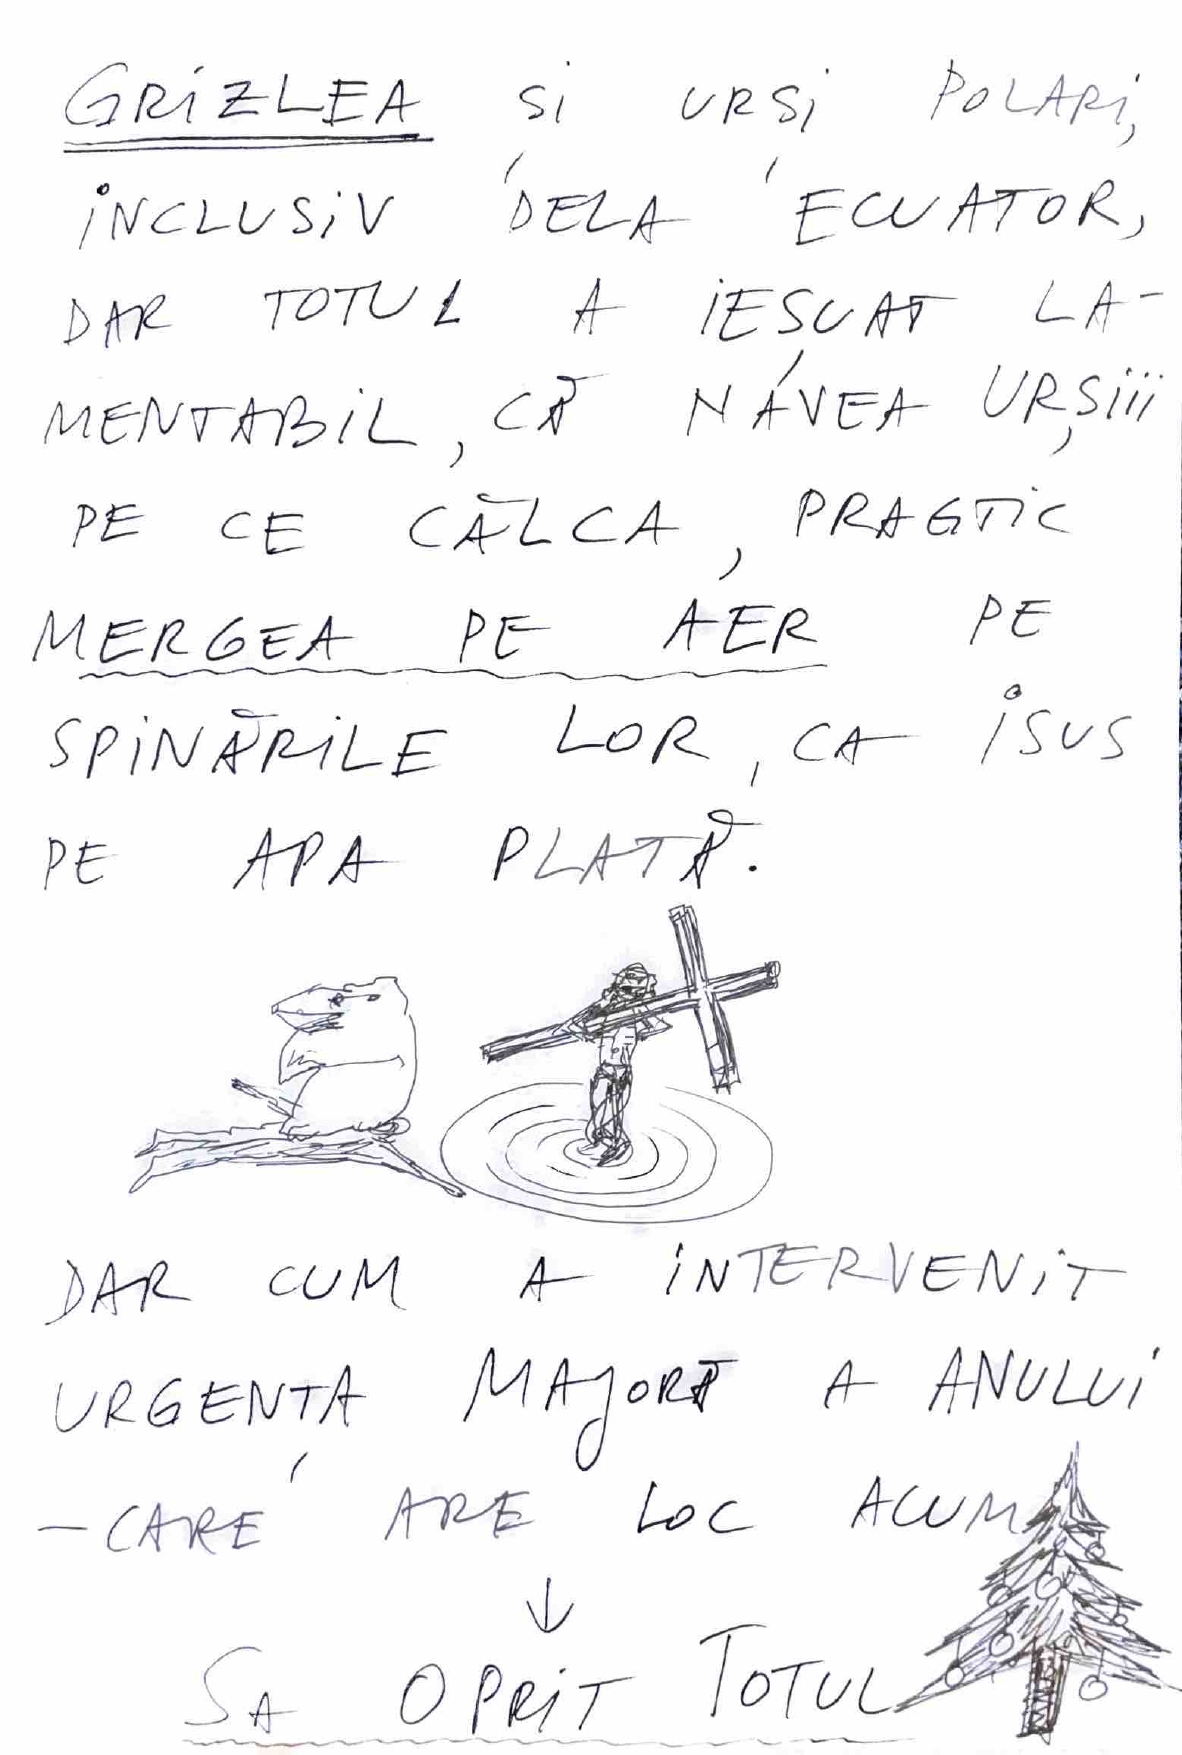 GRiZLEA Si URSi POLARi,
iNCLUSiV DELA ECUATOR,
DAR TOTUL A iEȘUAT LA-
MENTABiL, CĂ N'AVEA URȘiii
PE CE CĂLCA, PRAGTiC
MERGEA PE AER PE
SPiNĂRiLE LOR, CA iSUS
PE APA PLATĂ.
DAR CUM A iNTERVENiT
URGENTA MAJORĂ A ANULUi
- CARE ARE LOC ACUM
↓
SA OPRiT TOTUL